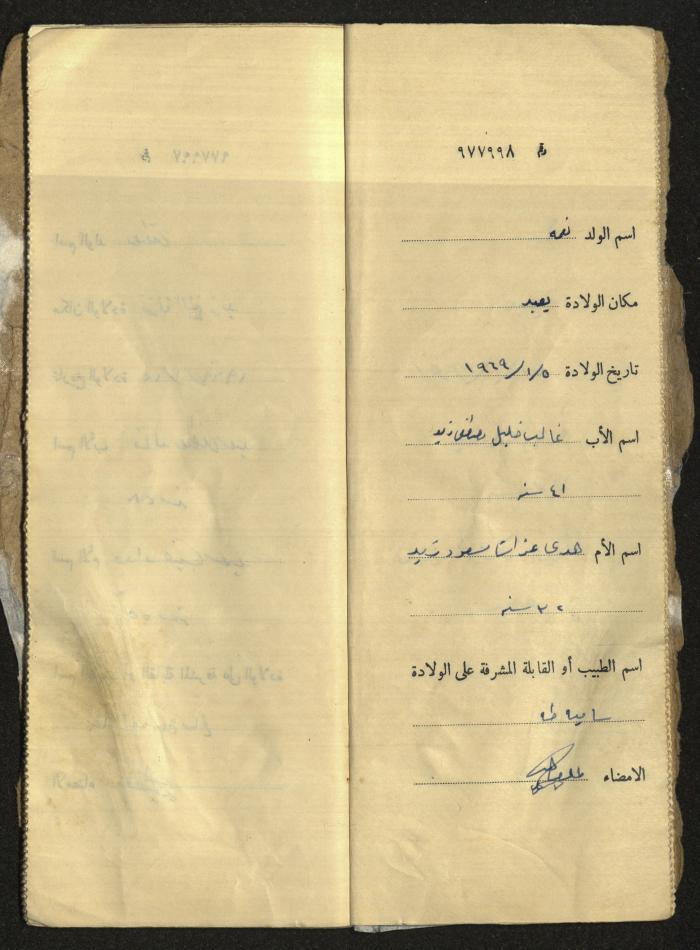 رقم ٩٧٧٩٩٨
اسم الولد نعمه
مكان الولادة يعبد
تاريخ الولادة ١٩٦٩/١/٥
اسم الأب غالب خليل مصطفى زيد
٤١ سنه
اسم الأم هدى عزات مسعود زيد
٣٢ سنه
اسم الطبيب أو القابلة المشرفة على الولادة
ساميه طه
الامضاء